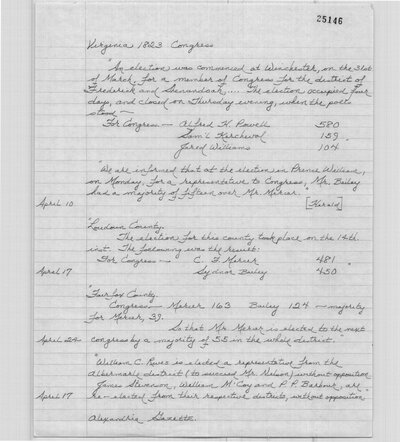 25146
Virginia 1823 Congress
"An election was commenced at Winchester, on the 31st
of March, for a member of Congress for the district of
Frederick and Shenandoah.... The election occupied four
days, and closed on Thursday evening, when the polls
stood —
For Congress — Alfred H. Powell 580
Sam'l Kercheval 159
Jared Williams 104
"We are informed that at the election in Prince William,
on Monday, for a representative to Congress, Mr. Bailey
had a majority of fifteen over Mr. Mercer."
April 10 [Herald]
"Loudoun County.
The election for this county took place on the 14th.
inst. The following was the result:
For Congress — C. F. Mercer 481
April 17 Sydnor Bailey 450 "
"Fairfax County.
Congress — Mercer 163 Bailey 124 — majority
for Mercer, 39.
So that Mr. Mercer is elected to the next
April 24 congress by a majority of 55 in the whole district.
"William C. Rives is elected a representative from the
Albemarle district (to succeed Mr. Nelson) without opposition
James Stevenson, William McCoy and P. P. Barbour, are
April 17 re-elected from their respective districts, without opposition"
Alexandria Gazette.